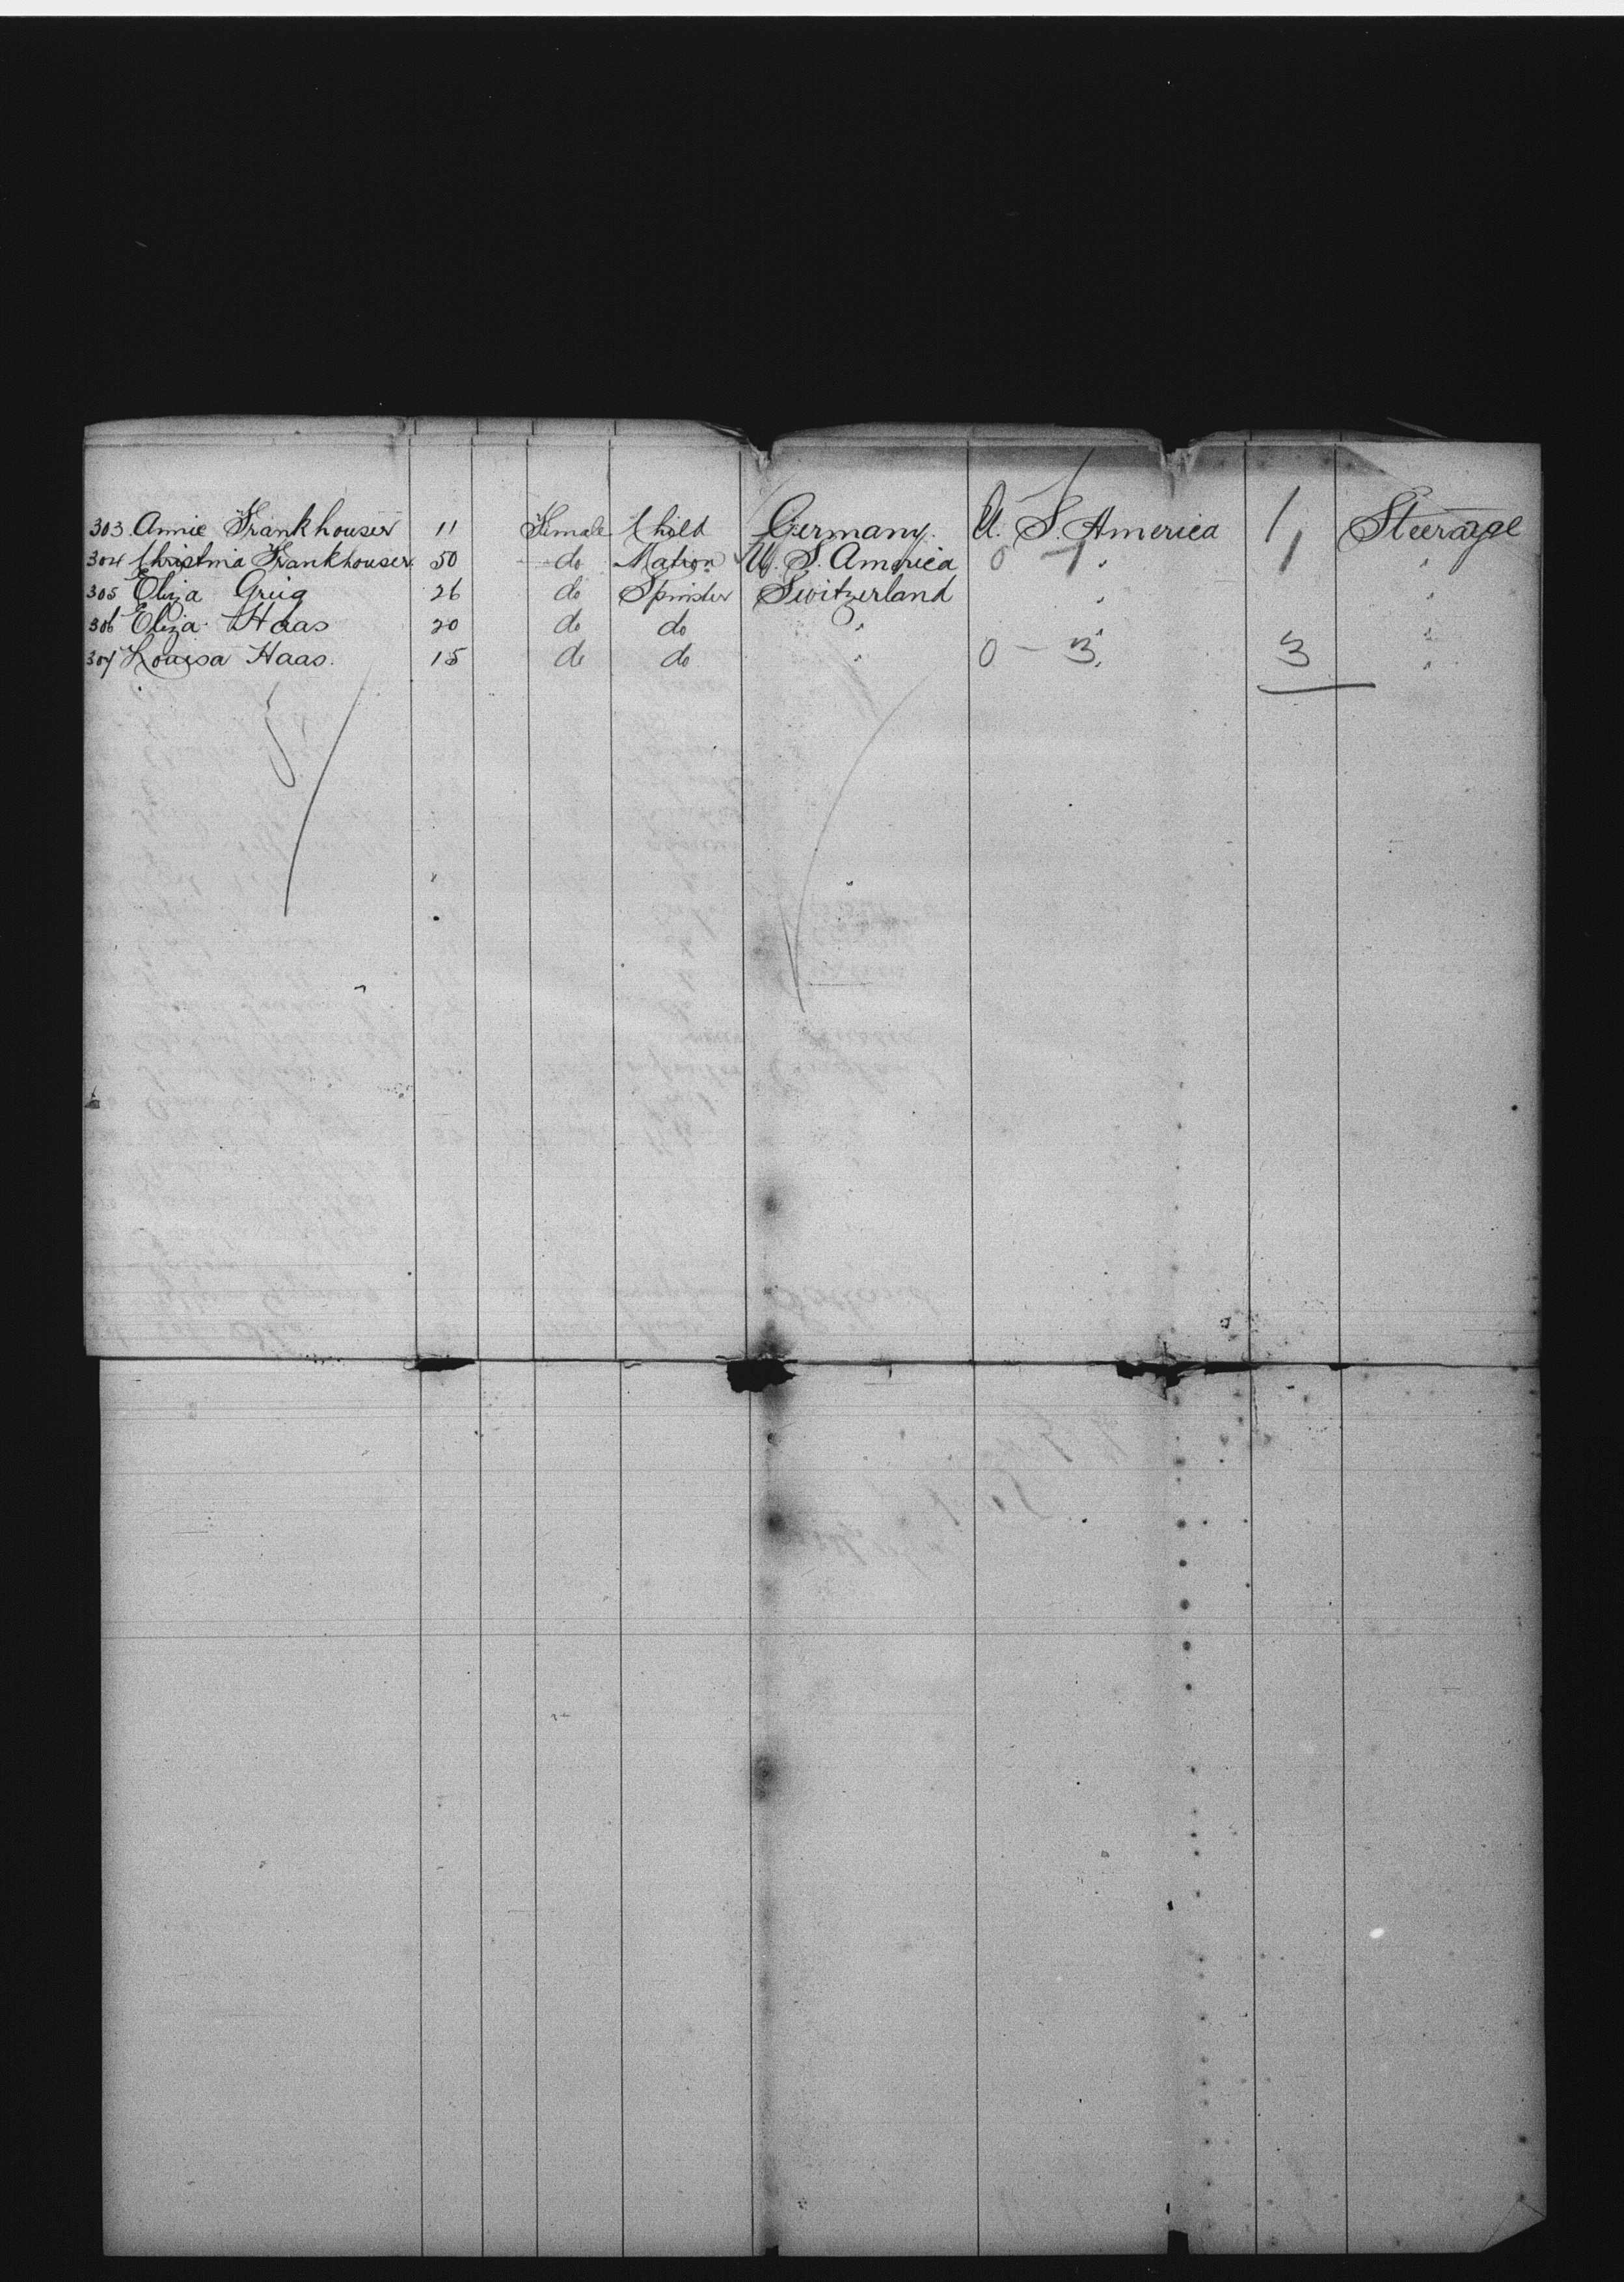 303 Annie Frankhouser 11 Female Child Germany. U. S. America 1 Steerage
304 Christina Frankhouser 50 do Matron U. S. America 0 - 1 " 1 "
305 Eliza Greig 26 do Spinster Switzerland " "
306 Eliza Haas 20 do do " " "
307 Louisa Haas. 15 do do " 0 - 3 " 3 "